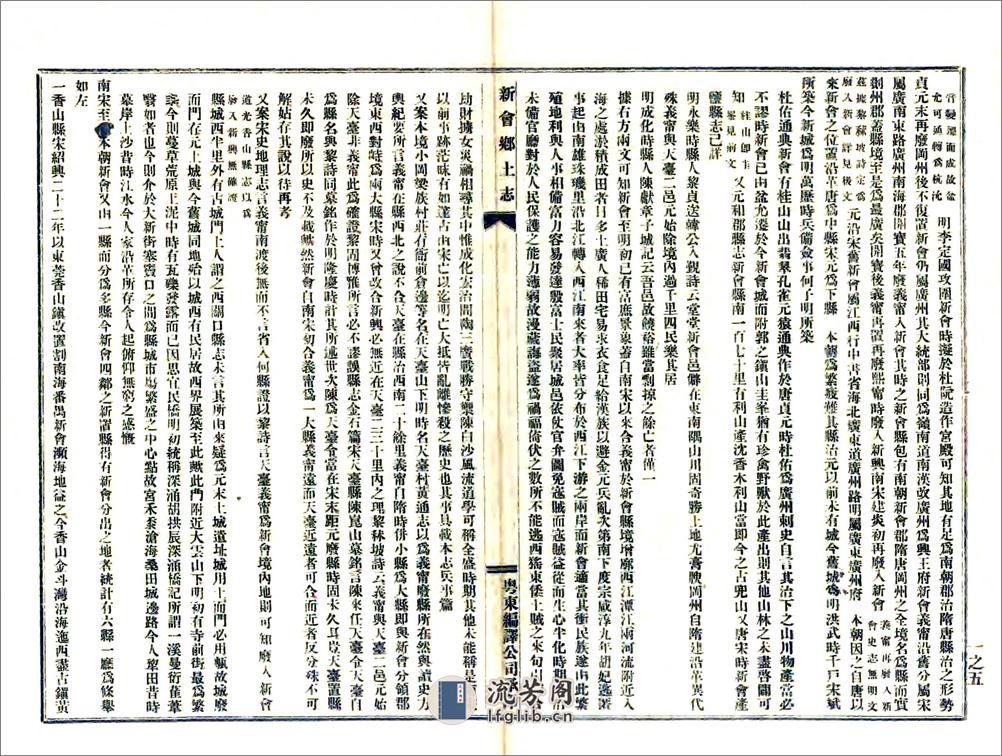 音變遷而成故金
尤可通轉為杭沅
明李定國攻圍新會時擬於杜阮造作宮殿可知其地有足為南朝郡治隋唐縣治之形勢
貞元末再廢岡州後不復置新會仍屬廣州其大統部則同為嶺南道南漢改廣州為興王府新會義甯沿舊分屬宋
屬廣南東路廣州南海郡開寶五年廢義甯入新會其時之新會縣包有南朝新會郡隋唐岡州之全境名為縣而實
割州郡蓋縣境至是為最廣矣開寶後義甯再置再廢熙甯時廢入新興南宋建炎初再廢入新會
義甯再廢入新
會史志無明文
茲據黎秫坡詩定為
廢入新會詳見後文
元沿宋舊新會屬江西行中書省海北廣東道廣州路明屬廣東廣州府本朝因之自唐以
來新會之位置沿革唐為中縣宋元為下縣本朝為繁疲難其縣治元以前未有城今舊城為明洪武時千戶宋斌
所築今新城為明萬歷時兵備僉事何子明所築
杜佑通典新會有桂山山出翡翠孔雀元猿通典作於唐貞元時杜佑為廣州刺史自言其治下之山川物產當必
不謬時新會已由盆允遷於今新會城而附郭之鎮山圭峯猶有珍禽野獸於此產出則其他山林之未盡啓闢可
知
桂山即圭
峯見前文
又元和郡縣志新會縣南一百七十里有利山產沈香木利山當即今之古兜山又唐宋時新會產
鹽縣志已詳
明永樂時縣人黎貞送韓公入覲詩云堂堂新會邑僻在東南隅山川固奇勝土地尤膏腴岡州自隋建沿革異代
殊義甯與天臺二邑元始除境內過千里四民樂其居
明成化時縣人陳獻章子城記云吾邑故饒給雖當剽掠之餘亡者僅一
據右方兩文可知新會至明初已有富庶景象蓋自南宋以來合義甯於新會縣境增廓西江潭江兩河流附近入
海之處淤積成田者日多土廣人稀田宅易求衣食足給漢族以避金元兵亂次第南下度宗咸淳九年胡妃逃匿
事起由南雄珠璣里沿北江轉入西江南來者大率皆分布於西江下游之兩岸而新會適當其衝民族由此繁
殖地利與人事相副富力容易發達廣東士民其在元末
未備官廳對於人民保護之能力薄弱故漫藏誨盜遂為禍福倚伏之數所不能逃西猺東倭土賊之來句引
新會鄉土志
粵東編譯公司承
劫財擄女災禍相尋其中惟成化宏治間陶三廣戰勝守禦陳白沙風流道學可稱全盛時期其他未能稱是
以前事跡茫昧有如邃古由宋亡以迄明亡大抵皆亂離慘殺之歷史也其事具載本志兵事篇
又案本境小岡梁族村莊有衙前倉邊等名在天臺山下明時名天臺村黃通志以為義甯廢縣所在然與讀史方
輿紀要所言義甯在縣西北之說不合天臺在縣治西南二十餘里義甯自隋時併小縣為大縣即與新會分領郡
境東西對峙為兩大縣宋時又曾改合新興必無近在天臺二三十里內之理黎秫坡詩云義甯與天臺二邑元始
除天臺非義甯此為確證黎固博雅所言必不謬誤縣志金石篇宋天臺縣陳崑山墓銘言陳任天臺令天臺自
為縣名與黎詩同墓銘作於明隆慶時計其所遞世次陳為天臺令當在宋末距元廢縣時固未久耳豈天臺
未久即廢所以史不及載歟然自南宋初合義甯為一大縣義甯遠而天臺近遠者可合而近者反分殊不可
解姑存其說以待再考
又案宋史地理志言義甯南渡後無而不言省入何縣證以黎詩言天臺義甯為新會境內地則可知廢入新會
道光香山縣志以為
廢入新興無確證
縣城西半里外有古城門上人謂之西闗口縣志未言其所由來疑為元末土城遺址城用土而門必用甎故城廢
而門在元土城與今舊城同地殆以城西有民居故西界展築至此歟此門附近大雲山下明初有寺前街最為繁
盛今則蔓草荒原土泥中時有瓦礫發露而已因思官民橋明初統稱深涌胡拱辰深涌橋記所謂一溪曼衍葭葦
翳如者也今則介於大新街寨賣口之間為縣城市塲繁盛之中心點故宮禾黍滄海桑田城邊路今人犂田昔時
墓岸上沙昔時江水今人家沿革所存令人起俯仰無窮之感慨
南宋至本朝新會又由一縣而分為多縣今新會四鄰之新置縣得有新會分出之地者統計有六縣一廳為條舉
如左
一香山縣宋紹興二十二年以東莞香山鎮改置割南海番禺新會瀕海地益之今香山金斗灣沿海海迤西盡古鎮黃
一之五
流芳阁
lfglib.cn